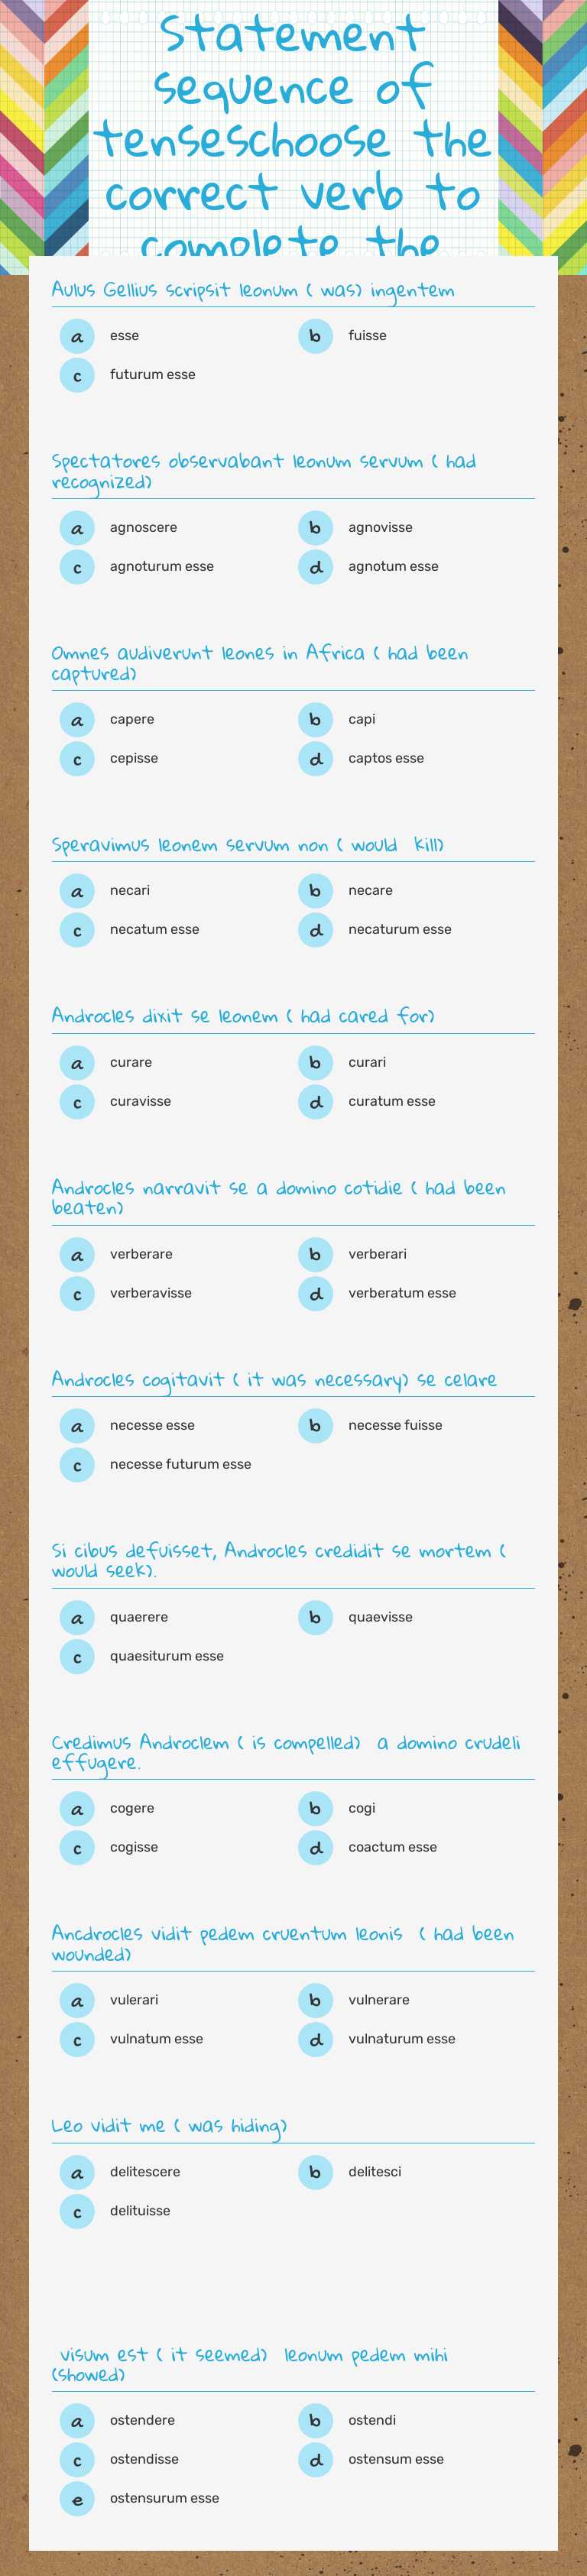 Statement
sequence of
tenseschoose the
correct verb to
complete the
Aulus Gellius scripsit leonum ( was) ingentem
a esse b fuisse
c futurum esse
Spectatores observabant leonum servum ( had
recognized)
a agnoscere b agnovisse
c agnoturum esse d agnotum esse
Omnes audiverunt leones in Africa ( had been
captured)
a capere b capi
c cepisse d captos esse
Speravimus leonem servum non ( would kill)
a necari b necare
c necatum esse d necaturum esse
Androcles dixit se leonem ( had cared for)
a curare b curari
c curavisse d curatum esse
Androcles narravit se a domino cotidie ( had been
beaten)
a verberare b verberari
c verberavisse d verberatum esse
Androcles cogitavit ( it was necessary) se celare
a necesse esse b necesse fuisse
c necesse futurum esse
Si cibus defuisset, Androcles credidit se mortem (
would seek).
a quaerere b quaevisse
c quaesiturum esse
Credimus Androclem ( is compelled) a domino crudeli
effugere.
a cogere b cogi
c cogisse d coactum esse
Ancdrocles vidit pedem cruentum leonis ( had been
wounded)
a vulerari b vulnerare
c vulnatum esse d vulnaturum esse
Leo vidit me ( was hiding)
a delitescere b delitesci
c delituisse
visum est ( it seemed) leonum pedem mihi
(showed)
a ostendere b ostendi
c ostendisse d ostensum esse
e ostensurum esse